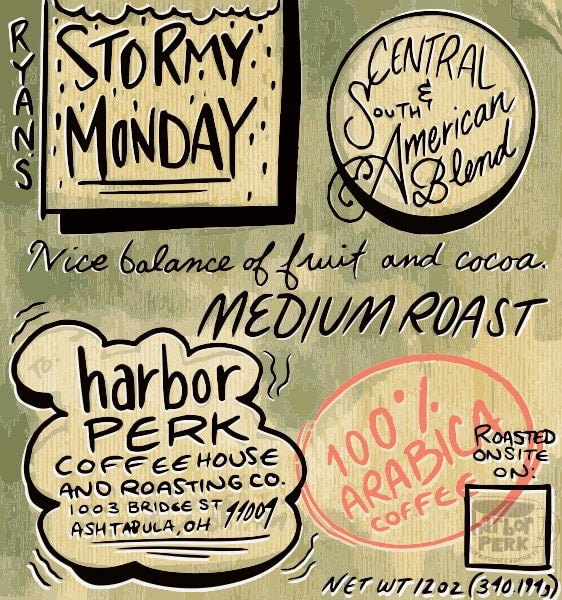 RYANS
STORMY
MONDAY
CENTRAL
&
SOUTH
American
Blend
Nice balance of fruit and cocoa.
MEDIUM ROAST
harbor
PERK
COFFEEHOUSE
AND ROASTING CO.
1003 BRIDGE ST
ASHTABULA, OH
100%
ARABICA
COFFEE
ROASTED
ONSITE
ON:
harbor
PERK
NET WT 12 OZ (340.194g)